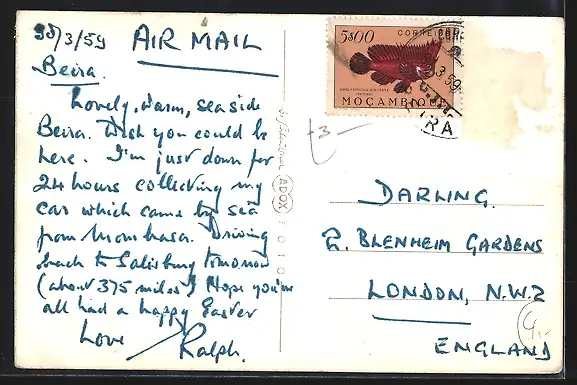 30/3/59 AIR MAIL
Beira.
Lovely, warm, seaside
Beira. Wish you could be
here. I'm just down for
24 hours collecting my
car which came by sea
from Mombasa. Driving
back to Salisbury tomorrow
(about 375 miles) Hope you've
all had a happy Easter
Love
Ralph.
ADOX FOTO
5$00 CORREIOS
MOÇAMBIQUE
3-
DARLING.
2. BLENHEIM GARDENS
LONDON, N.W.2
ENGLAND
4,-